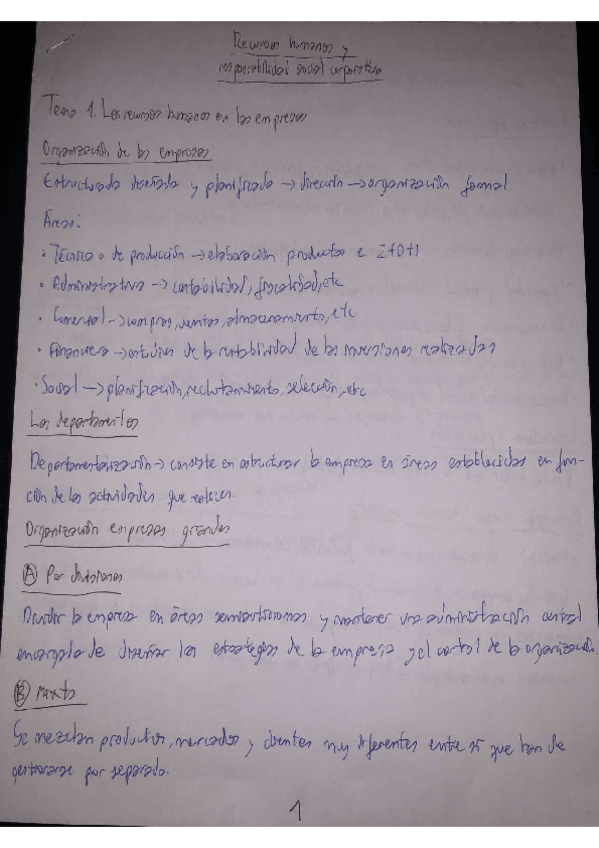 Recursos humanos y
responsabilidad social corporativa
Tema 1. Los recursos humanos en las empresas
Organización de las empresas
Estructurada diseñada y planificada → dirección → organización formal
Áreas:
· Técnica o de producción → elaboración productos e I+D+I
· Administrativa → contabilidad, fiscalidad, etc
· Comercial → compras, ventas, almacenamiento, etc
· Financiera → estudios de la rentabilidad de las inversiones realizadas
· Social → planificación, reclutamiento, selección, etc
Los departamentos
Departamentalización → consiste en estructurar la empresa en áreas establecidas en fun-
ción de las actividades que realicen.
Organización empresas grandes
A Por divisiones
Dividir la empresa en áreas semiautónomas y mantener una administración central
encargada de diseñar las estrategias de la empresa y el control de la organización.
B Mixta
Se mezclan productos, mercados y clientes muy diferentes entre sí que han de
gestionarse por separado.
1